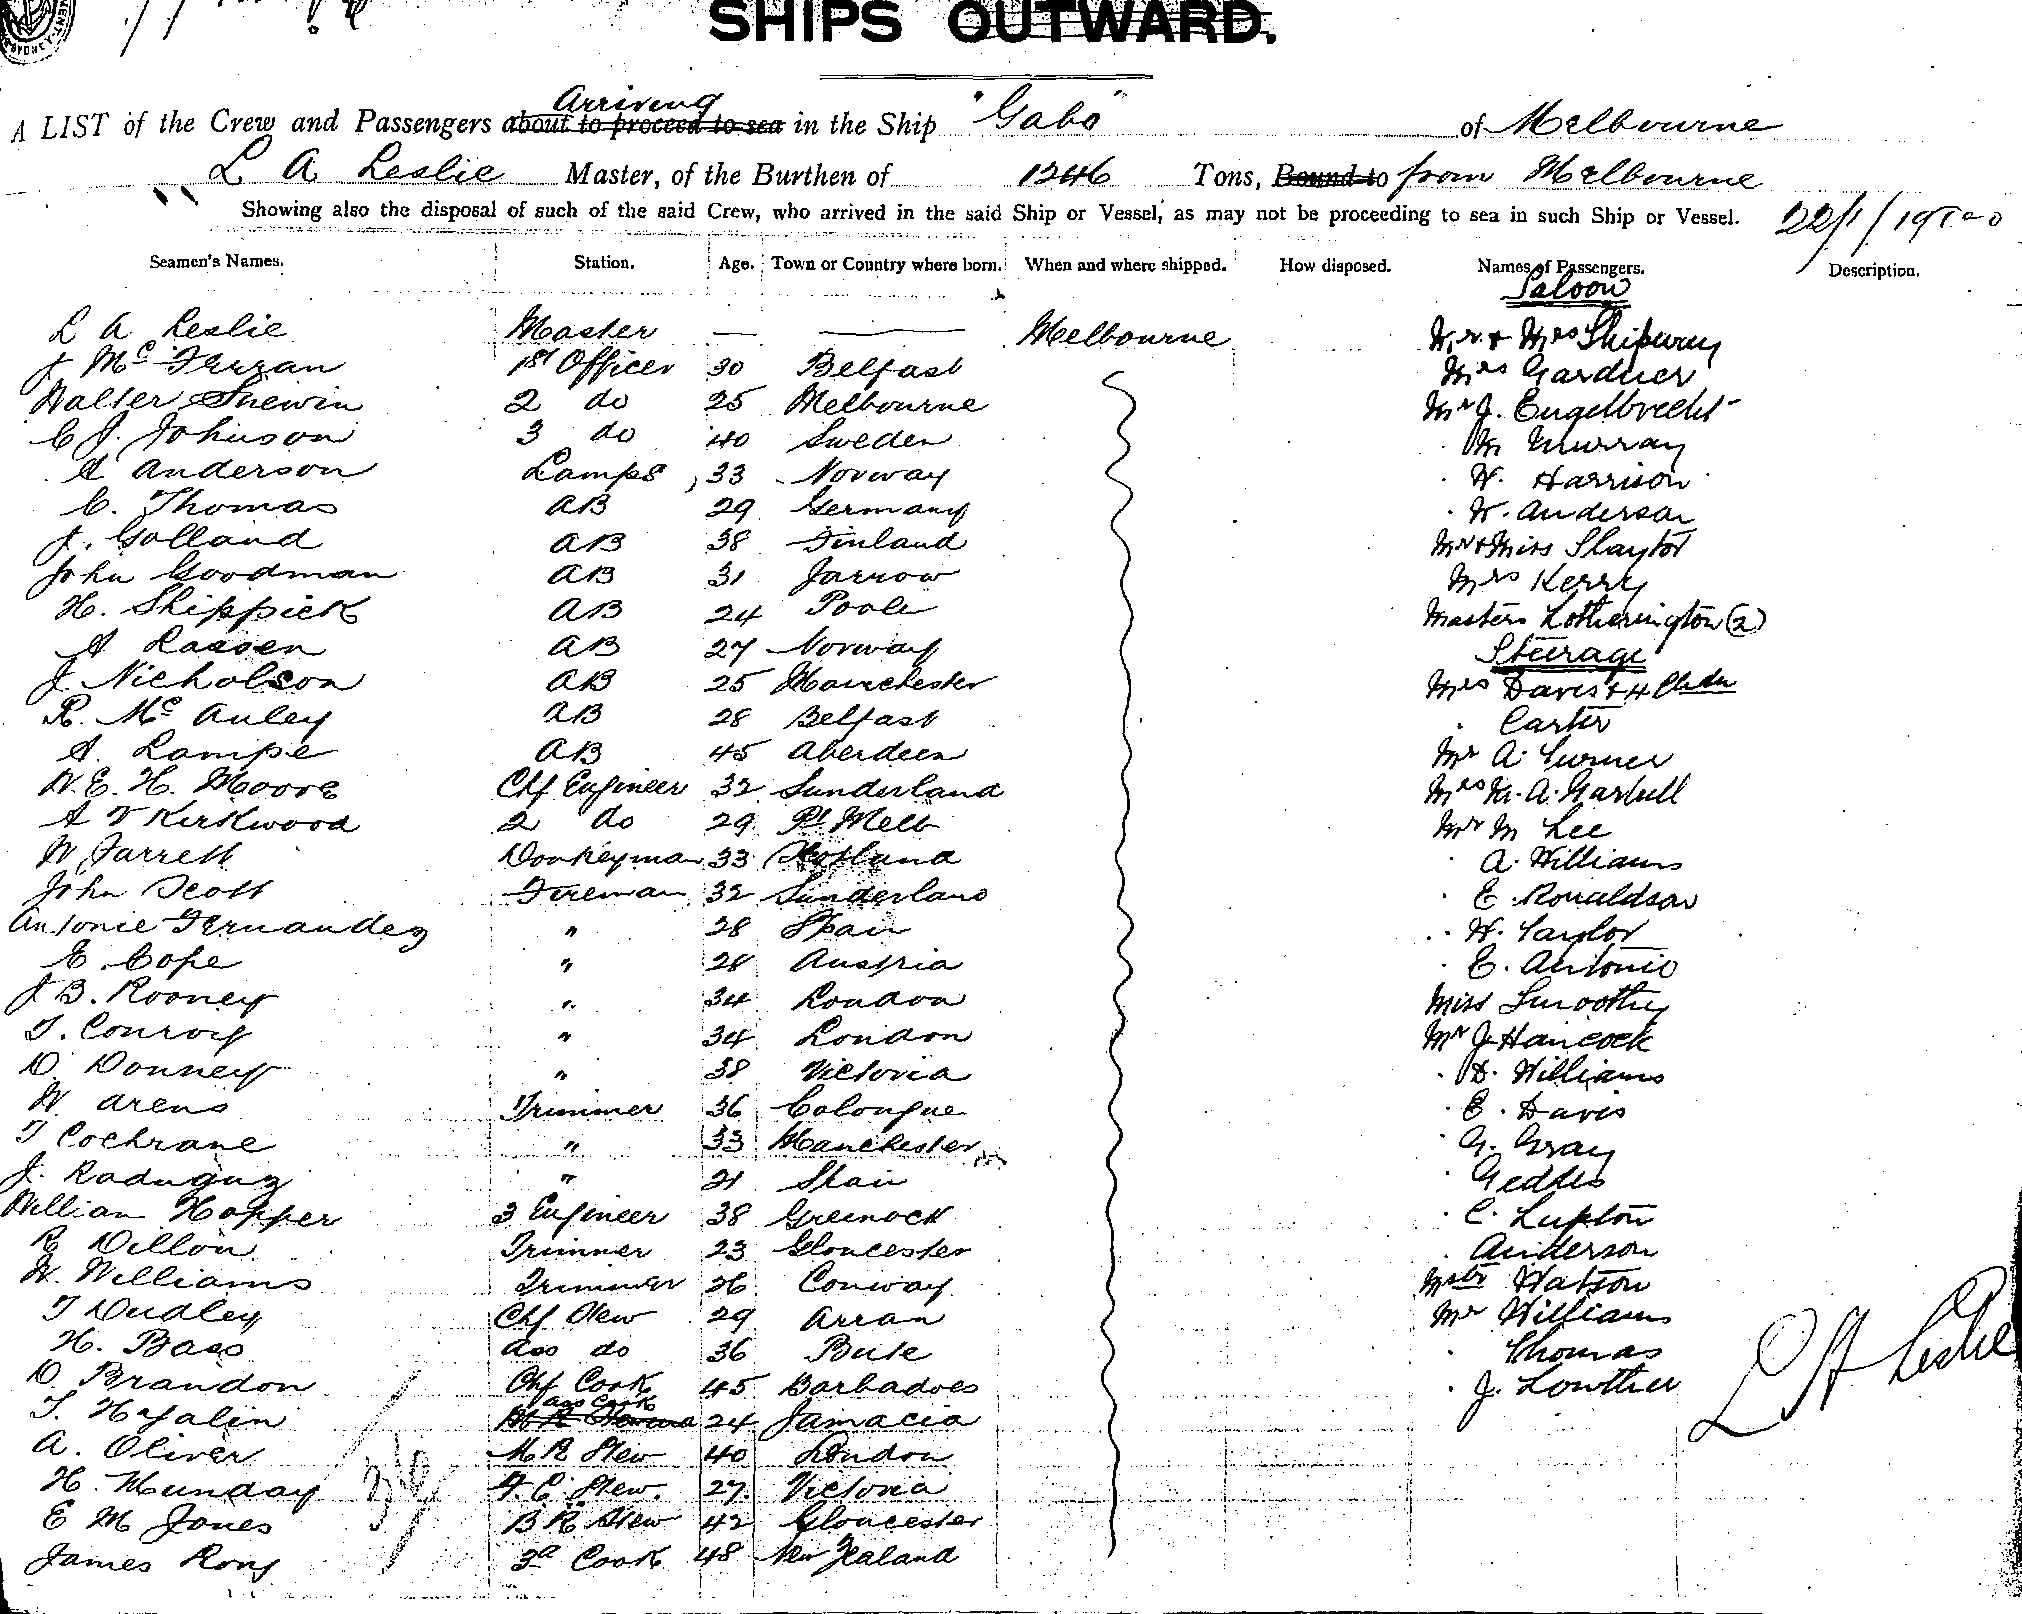 SHIPS OUTWARD.
Arriving
A LIST of the Crew and Passengers about to proceed to sea in the Ship "Gabo" of Melbourne
L A Leslie Master, of the Burthen of 1246 Tons, Bound to from Melbourne
Showing also the disposal of such of the said Crew, who arrived in the said Ship or Vessel, as may not be proceeding to sea in such Ship or Vessel. 22/1/1900
Seamen's Names. Station. Age. Town or Country where born. When and where shipped. How disposed. Names of Passengers. Description.
Saloon
L A Leslie Master — — Melbourne Mr & Mrs Shipway
J McFerran 1st Officer 30 Belfast Mrs Gardner
Walter Shewin 2 do 25 Melbourne Mr J. Engelbrecht
C J. Johnson 3 do 40 Sweden M Murray
A Anderson Lamps 33 Norway W. Harrison
C. Thomas AB 29 Germany W. Anderson
J. Golland AB 38 Finland Mr & Miss Slaytor
John Goodman AB 31 Jarrow Mrs Kerry
H. Shippick AB 24 Poole Masters Lotherington (2)
A Lassen AB 27 Norway Steerage
J. Nicholson AB 25 Manchester Mrs Davis & 4 Chdn
R. McAuley AB 28 Belfast " Carter
A. Lampe AB 45 Aberdeen Mr A. Turner
W. E. H. Moore Chf Engineer 32 Sunderland Mrs M. A. Garbell
A V Kirkwood 2 do 29 Pt Melb Mr M Lee
W Jarrett Donkeyman 33 Scotland " A. Williams
John Scott Fireman 32 Sunderland " E. Ronaldson
Antonie Fernandez " 28 Spain " H. Taylor
E. Cope " 28 Austria " E. Antonio
J B. Rooney " 34 London Miss Smoothy
T. Conroy " 34 London Mr J. Hancock
D. Donney " 38 Victoria " D. Williams
W Arens Trimmer 36 Colongue " E. Davis
T Cochrane " 33 Manchester " G. Gray
J. Raduguz " 21 Spain " Geddes
William Hopper 3 Engineer 38 Greenock " C. Lupton
R Dillon Trimmer 23 Gloucester " Anderson
W. Williams Trimmer 26 Conway Mstr Watson
T Dudley Chf Stew 29 Arran Mr Williams
H. Bass Ass do 36 Bute " Thomas
D Brandon Chf Cook 45 Barbadoes " J. Lowther
Ass Cook
T. Hyalin 24 Jamacia L A Leslie
A. Oliver M R Stew 40 London
H. Munday F. C. Stew. 27 Victoria
E M Jones B R Stew 42 Gloucester
James Rony 3d Cook 48 New Zealand
36